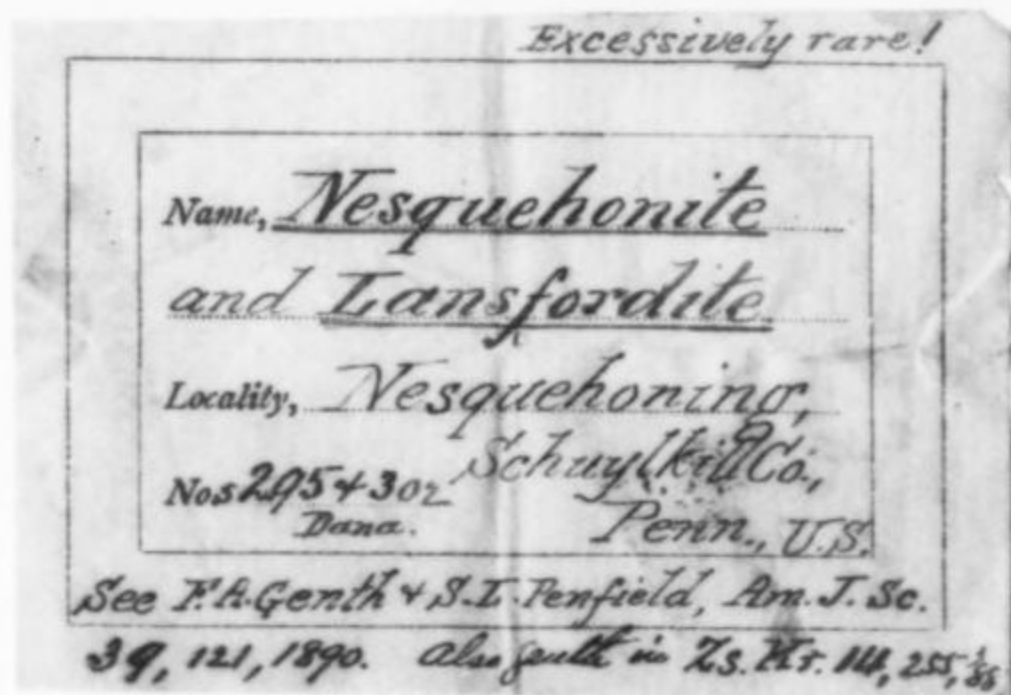 Excessively rare!
Name, Nesquehonite
and Lansfordite
Locality, Nesquehoning,
Schuylkill Co.,
Nos 295 + 302
Dana.
Penn., U.S.
See F.A. Genth & S.L. Penfield, Am. J. Sc.
39, 121, 1890. also Genth in Zs. Kr. 14, 255,